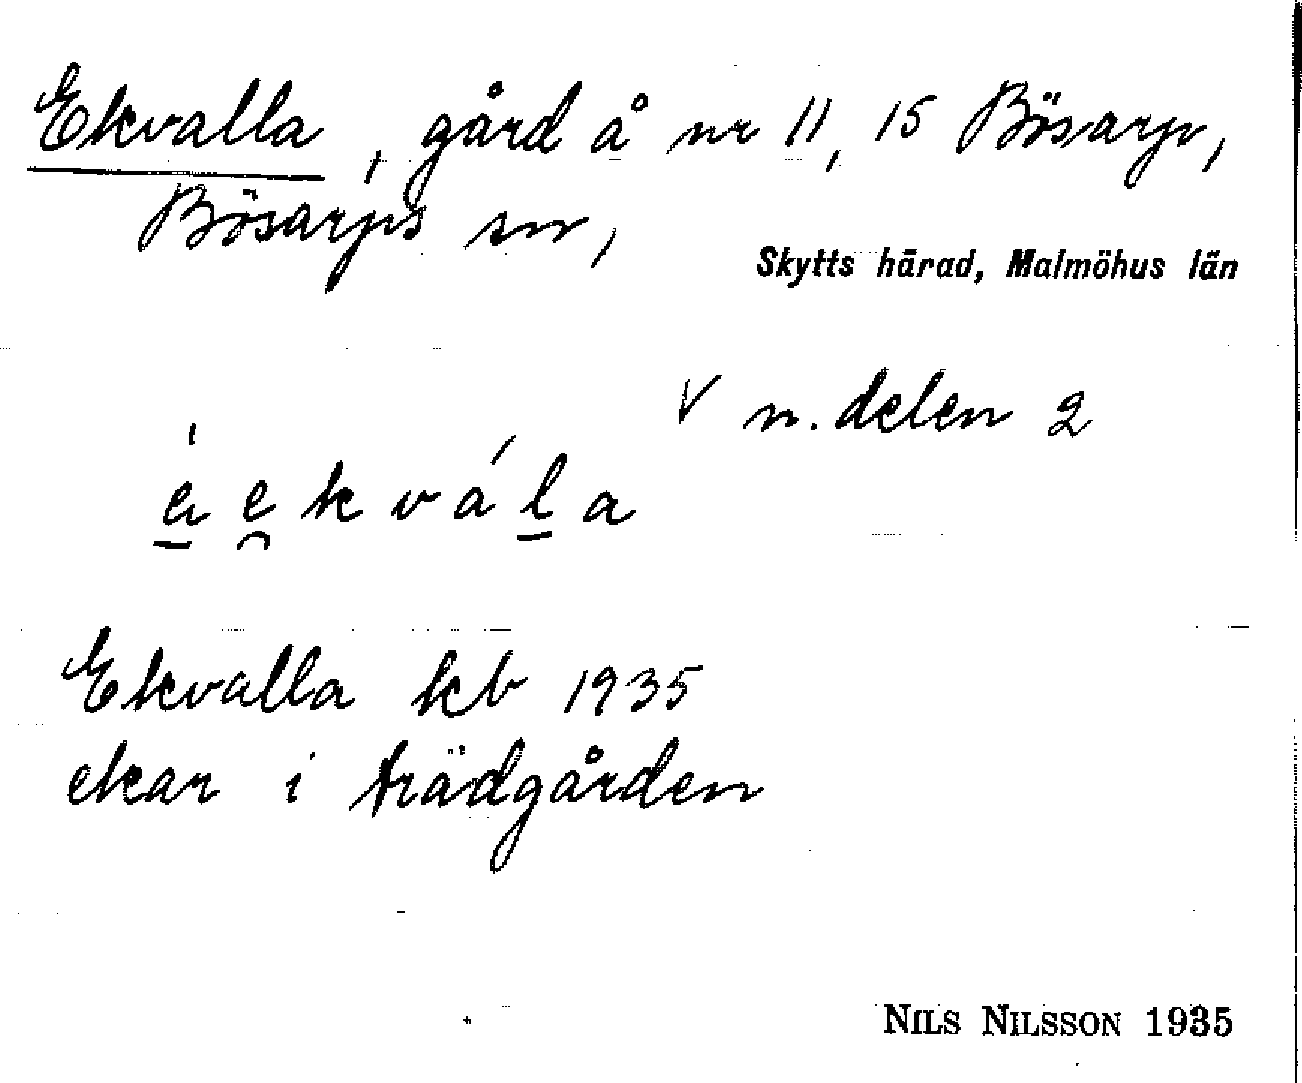 Ekvalla, gård å nr 11, 15 Bösarp,
Bösarps sn,
Skytts härad, Malmöhus län
V n. delen 2
e e k v á l a
Ekvalla kb 1935
ekar i trädgården
NILS NILSSON 1935